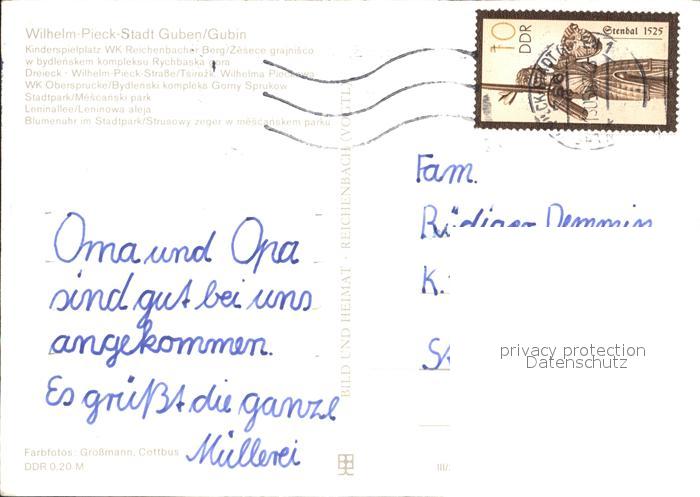 Wilhelm-Pieck-Stadt Guben/Gubin
Kinderspielplatz WK Reichenbacher Berg/Zěsece grajnišćo
w bydleńskem kompleksu Rychbaska gora
Dreieck - Wilhelm-Pieck-Straße/Tśirožk Wilhelma Piecka
WK Obersprucke/Bydleński kompleks Gorny Sprukow
Stadtpark/Měšćański park
Leninallee/Leninowa aleja
Blumenuhr im Stadtpark/Strusowy zeger w měšćańskem parku
10
DDR
Stendal 1525
Oma und Opa
sind gut bei uns
angekommen.
Es grüßt die ganze
Müllerei
BILD UND HEIMAT · REICHENBACH (VOGTL)
Fam.
Rüdiger Demmin
K.
privacy protection
Datenschutz
Farbfotos: Großmann, Cottbus
DDR 0,20 M
III/